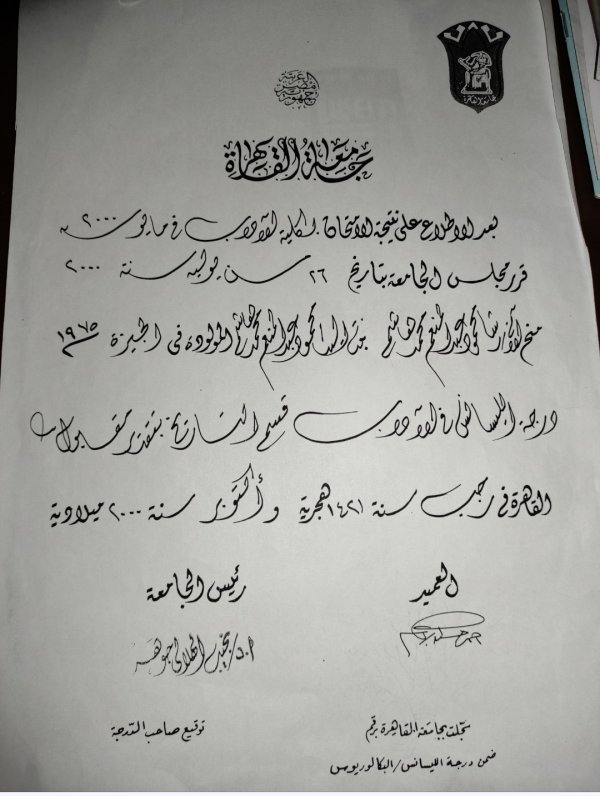 جمهورية مصر العربية
جامعة القاهرة
جامعة القاهرة
بعد الاطلاع على نتيجة الامتحان لكلية الآداب في مايو سنة ٢٠٠٠
قرر مجلس الجامعة بتاريخ ٢٦ من يوليه سنة ٢٠٠٠
منح محمود عبد المنعم محمد هاشم محمود عبد المنعم محمد هاشم المولودة في الجيزة ١٩٧٥
درجة الليسانس في الآداب قسم التاريخ بتقدير مقبول
القاهرة في رجب سنة ١٤٢١ هجرية وأكتوبر سنة ٢٠٠٠ ميلادية
العميد
رئيس الجامعة
أ.د/ نجيب الهلالي جوهر
سجلت بجامعة القاهرة برقم
ضمن درجة الليسانس/البكالوريوس
توقيع صاحب الدرجة